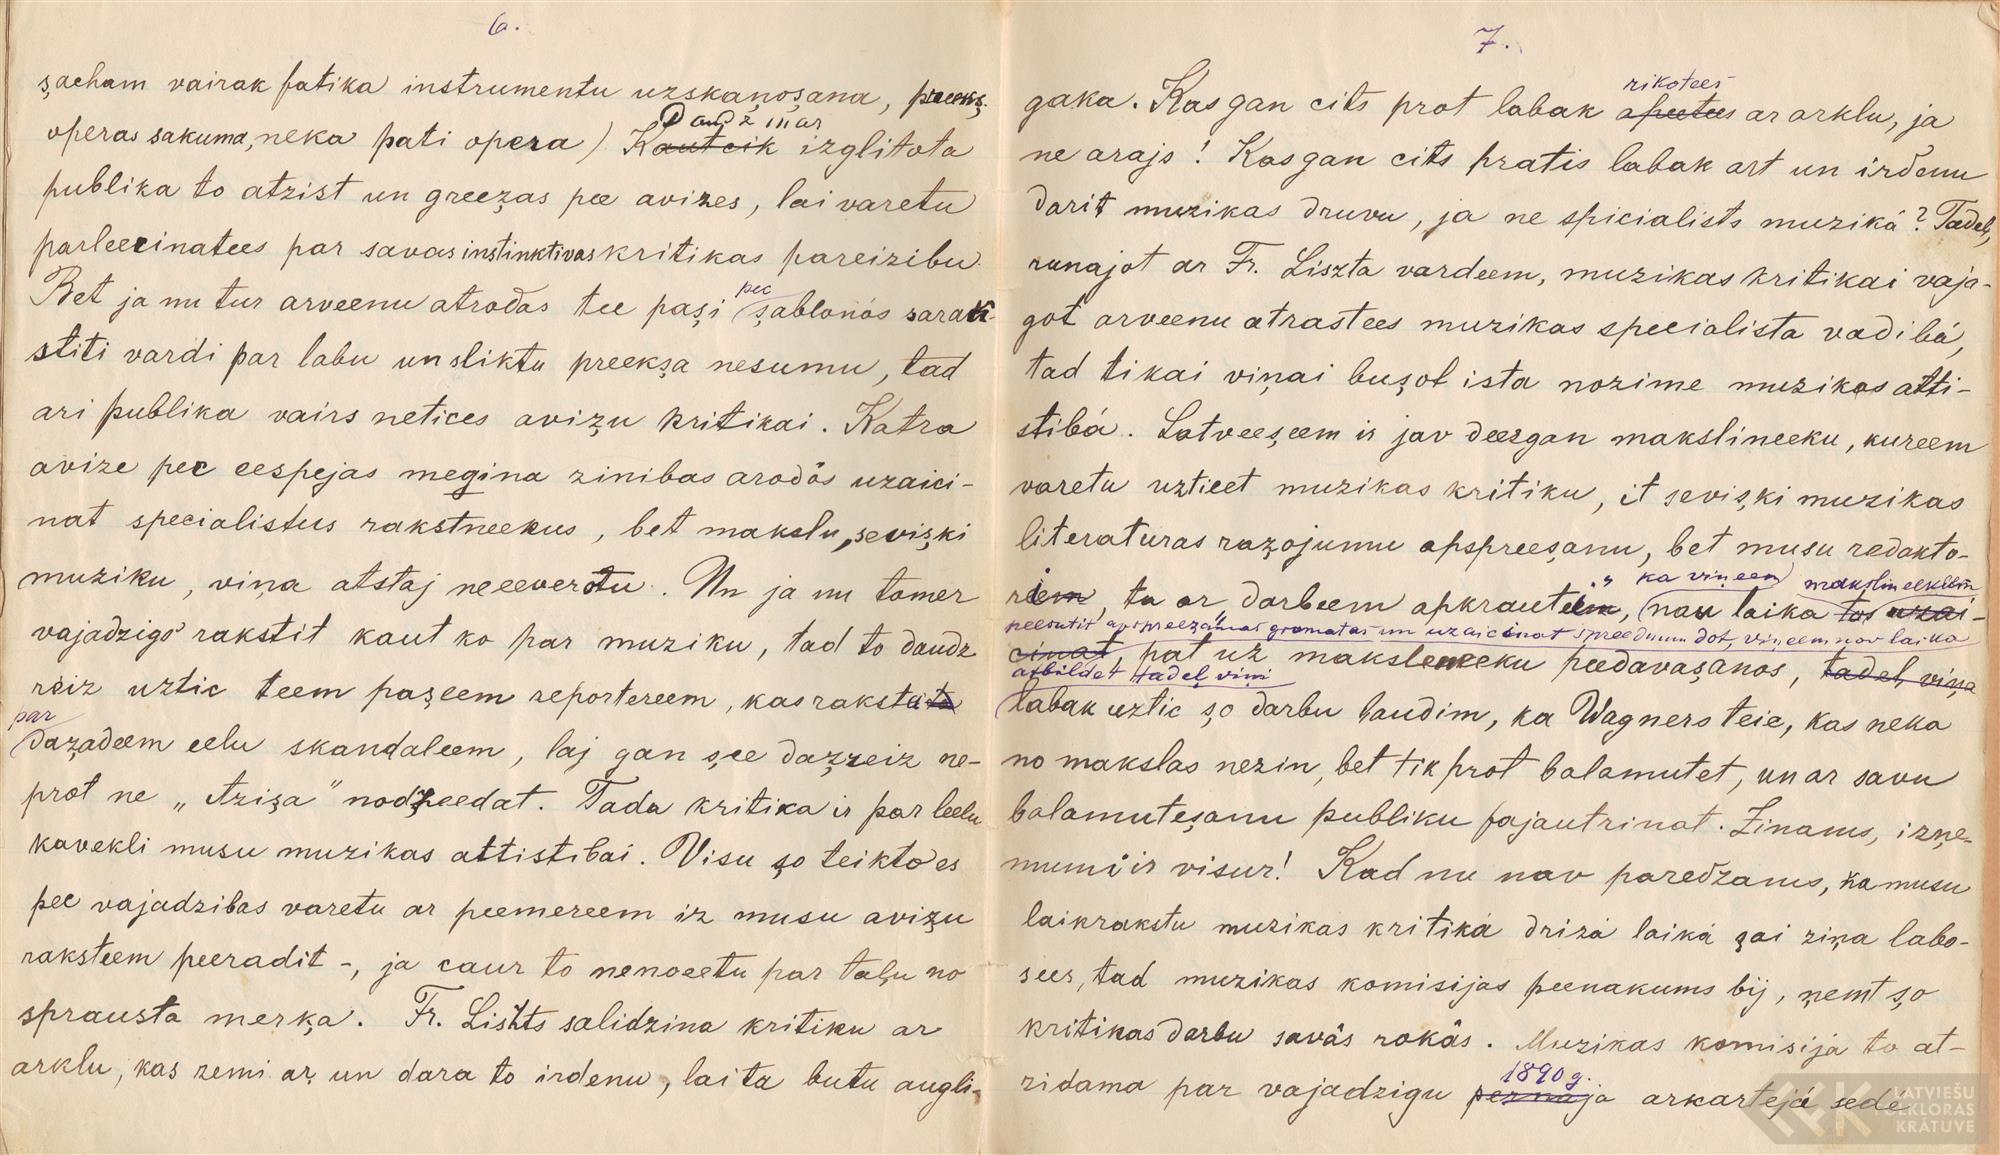 6.
şacham vairak patika instrumentu uzskaņoşana, preekş
operas sakuma, neka pati opera) Kautcik izglitota
Daudzmar
publika to atzist un greeżas pee avizes, lai varetu
parleecinatees par savas instinktivas kritikas pareizibu.
Bet ja nu tur arveenu atrodas tee paşi pec şablonôs sarak-
stiti vardi par labu un sliktu preekşa nesumu, tad
ari publika vairs netices avižu kritikai. Katra
avize pec eespejas megina zinibas arodôs uzaici-
nat specialistus rakstneekus, bet makslu, sevişki
muziku, viņa atstaj neeeverotu. Un ja nu tomer
vajadzigs rakstit kaut ko par muziku, tad to daudz
reiz uztic teem paşeem reportereem, kas raksta
par dażadeem eelu skandaleem, laj gan şee dażreiz ne-
prot ne „Azişa" nodzeedat. Tada kritika ir par leelu
kavekli musu muzikas attistibai. Visu şo teikto es
pec vajadzibas varetu ar peemereem iz musu avižu
raksteem peeradit -, ja caur to nenoeetu par taļu no
sprausta merķa. Fr. Lishts salidzina kritiku ar
arklu, kas zemi aŗ un dara to irdenu, lai ta butu augli-
7.
gaka. Kas gan cits prot labak apeetees ar arklu, ja
rikotees
ne arajs! Kas gan cits pratis labak art un irdenu
darit muzikas druvu, ja ne spicialists muzikâ? Tadeļ,
runajot ar Fr. Liszta vardeem, muzikas kritikai vaja-
got arveenu atrastees muzikas specialista vadibâ,
tad tikai viņai buşot ista nozime muzikas atti-
stibâ. Latveeşeem ir jav deezgan makslineeku, kureem
varetu uzticet muzikas kritiku, it sevişki muzikas
literaturas rażojumu apspreeşanu, bet musu redakto-
ka viņeem makslineekeem
ri, ta ar „darbeem apkrauti", nau laika tos uzai-
peesutit apspreeżamas gramatas un uzaicinat spreedumu dot, viņeem nav laika
cinat pat uz makslineeku peedavaşanos, tadeļ viņa
atbildet tadeļ viņi
labak uztic şo darbu ļaudim, ka Wagners teic, kas neka
no makslas nezin, bet tik prot balamutet, un ar savu
balamuteşanu publiku pajautrinat. Zinams, izņe-
mumi ir visur! Kad nu nav paredzams, ka musu
laikrakstu muzikas kritikâ drizâ laikâ şai ziņa labo-
sees, tad muzikas komisijas peenakums bij, ņemt şo
kritikas darbu savâs rokâs. Muzikas komisija to at-
zidama par vajadzigu pernaja arkartejâ sedê
1890 g.
LATVIEŠU
FOLKLORAS
KRĀTUVE